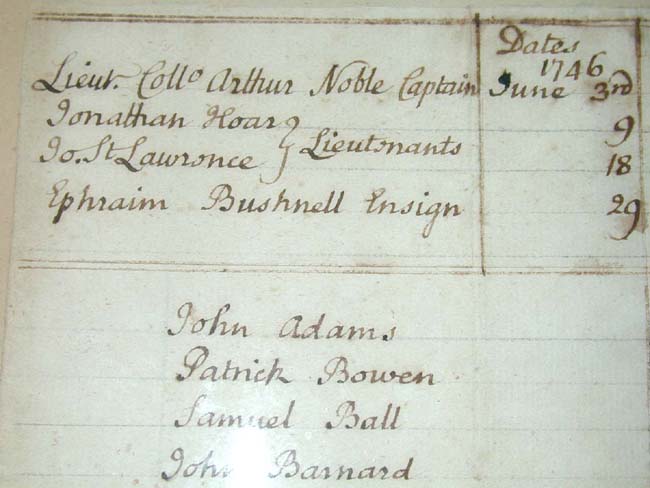 Dates
1746
Lieut. Collo Arthur Noble Captain June 3rd
Jonathan Hoar 9
Jo. St Lawrence } Lieutenants 18
Ephraim Bushnell Ensign 29
John Adams
Patrick Bowen
Samuel Ball
John Barnard